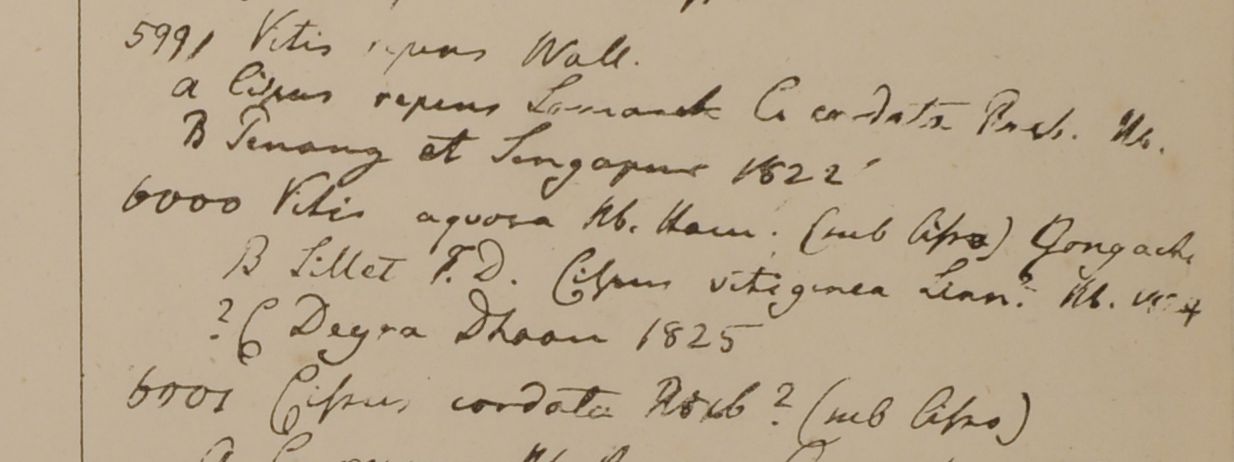 5991 Vitis repens Wall.
a Cissus repens Lamarck C. cordata Roxb. Hb.
B Penang et Singapore 1822
6000 Vitis aquosa Hb. Ham. (sub Cisso) Gongachi
B Sillet F. D. Cissus vitiginea Linn? Hb.
? C Deyra Dhoon 1825
6001 Cissus cordata Roxb? (sub Cisso)